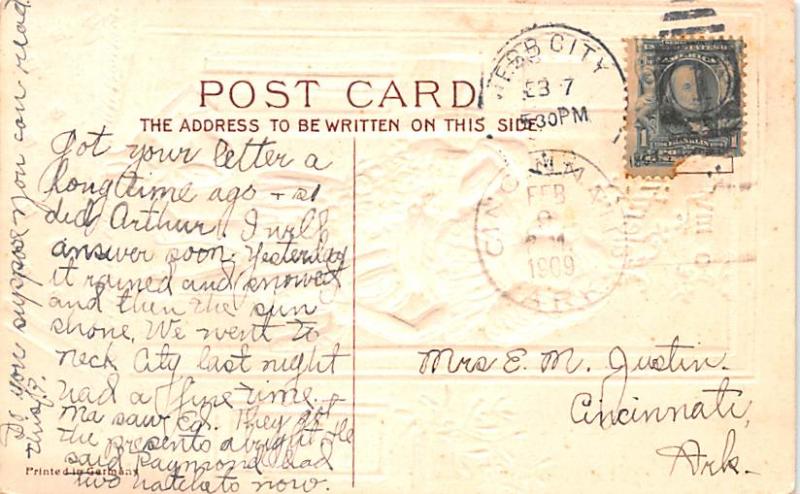 POST CARD
THE ADDRESS TO BE WRITTEN ON THIS SIDE
WEBB CITY
FEB 7
5 30PM
CINCINNATI
FEB
9
1909
ARK.
1
Got your letter a
long time ago + so
did Arthur. I will
answer soon. Yesterday
it rained and snowed
and then the sun
shone. We went to
Neck City last night
had a fine time.
Ma saw Ed. They got
the presents alright. He
said Raymond had
two hatchets now.
Do you suppose you can read
this?
Mrs E. M. Justin.
Cincinnati,
Ark.
Printed in Germany